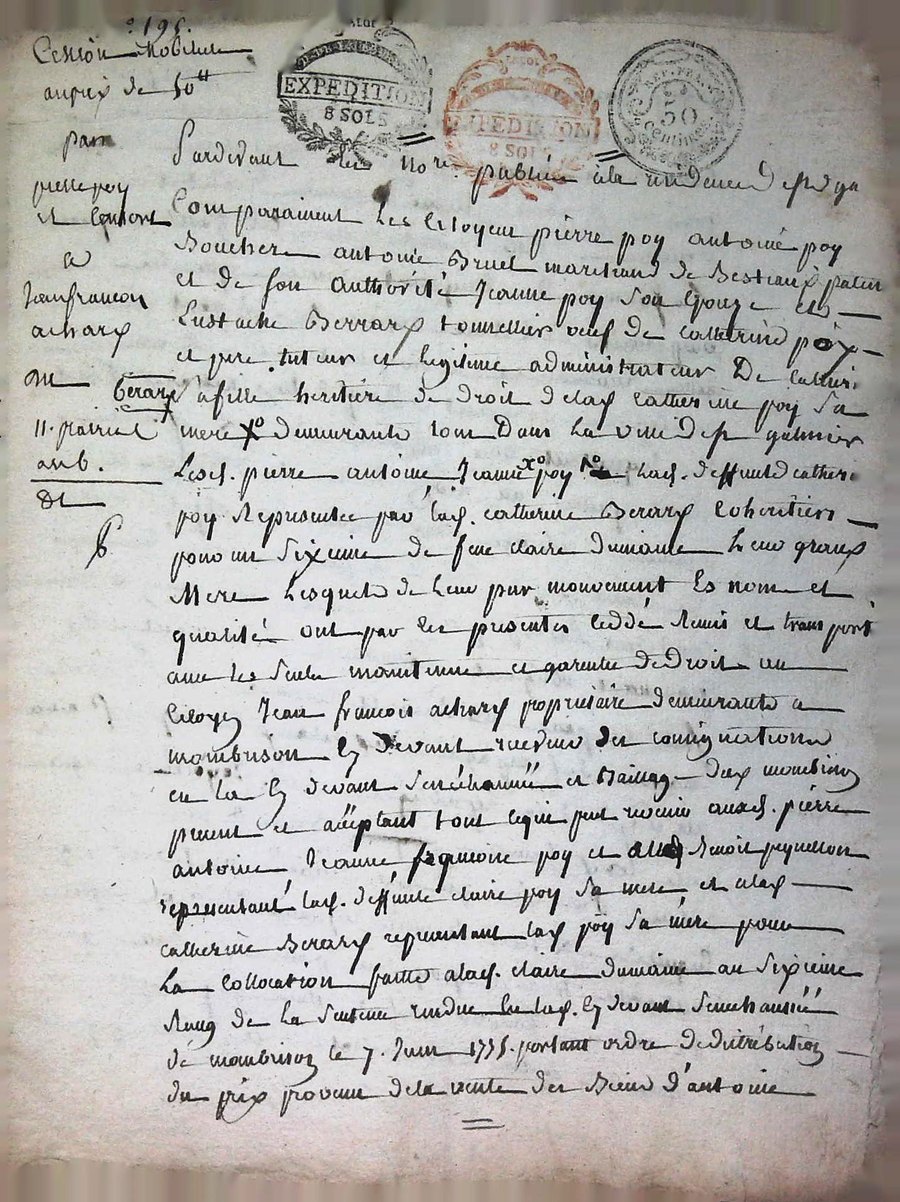 195.
Cession Mobiliere
au prix de 50ᵗᵗ
par
pierre poy
et Consort
a
Jean francois
achard
Du
11. prairial
an 6.
Berard
EXPEDITION
8 SOLS
EXPEDITION
8 SOLS
REP. FRA.
50
Centimes
Pardevant les Nore. publics a la residence de
Comparaissent Les Citoyens pierre poy antoine poy
Boucher antoine Bruel marchand de Bestiaux
et de son authorité Jeanne poy son Epouze et
Eustache Berard tonnellier veuf de catherine poy
et pere tuteur et legitime administrateur De
sa fille heritiere de droit de lad. catherine poy sa
mere demeurants tous Dans La ville de galmier
Lesd. pierre antoine Jeanne poy lad. deffunte
poy Representée par lad. catherine Berard Coheritiers
pour un Sixieme de feue claire dumaine Leur grand
Mere Lesquels de Leur pur mouvement Es noms et
qualités ont par les presentes Ceddé Remis et transporté
avec les Seules maintenue et garentie de Droit au
Citoyen Jean francois achard proprietaire demeurants a
montbrison Cy devant receveur des Consignations
en la Cy devant Senéchaussée et Baillage de montbrison
present et acceptant tout ce qui peut revenir auxd. pierre
antoine Jeanne poy et Benoit
representant lad. deffunte claire poy sa mere et a lad.
catherine Berard representant lad. poy sa mere pour
La Collocation faitte a lad. claire dumaine au Sixieme
Rang de La Sentence rendue en lad. Cy devant Senechaussée
de montbrison le 7. Juin portant ordre de distribution
du prix provenu de la vente des Biens d'antoine